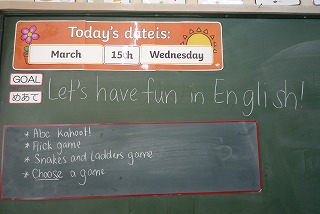 Today's date is:
March 15th Wednesday
GOAL
めあて
Let's have fun in English!
* Abc kahoot!
* Flick game
* Snakes and Ladders game
* Choose a game